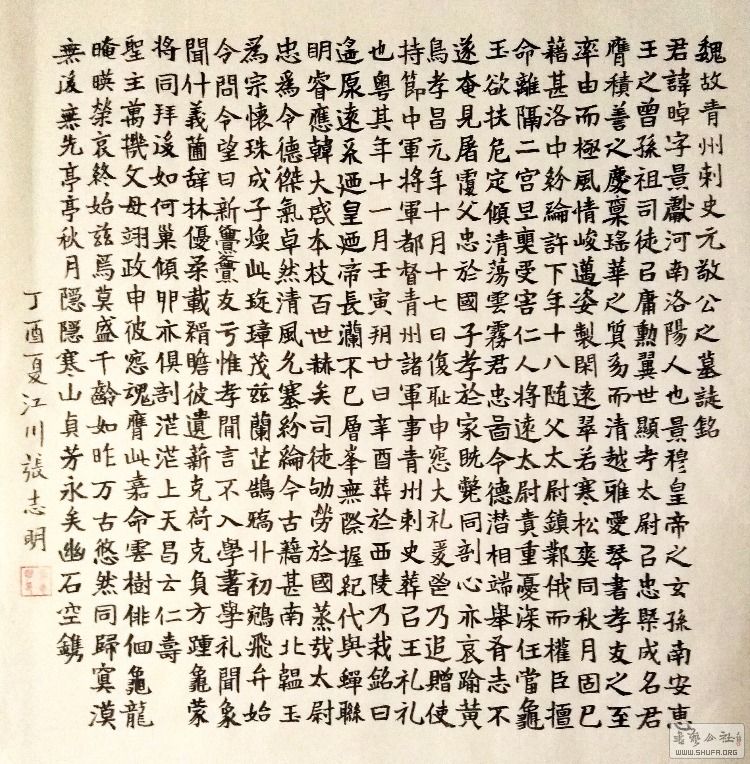 魏故青州刺史元敬公之墓誌銘
君諱晫字景獻河南洛陽人也景穆皇帝之玄孫南安惠
王之曾孫祖司徒㠯庸勳翼世顯考太尉㠯忠槩成名君
膺積善之慶稟瑤華之質㓜而清越雅愛琴書孝友之至
率由而極風情峻邁姿製閑遠翠若寒松爽同秋月固已
藉甚洛中紛綸許下年十八随父太尉鎮鄴俄而權臣擅
命離隔二宮旦奭受害仁人將遠太尉責重憂深任當龜
玉欲扶危定傾清蕩雲霧君忠啚令德潜相端舉脊志不
遂奄見屠覆父忠於國子孝於家旣斃同剖心亦哀踰黄
鳥孝昌元年十月十七日復恥申窓大礼爰쯀乃追贈使
持節中軍將軍都督青州諸軍事青州刺史葬㠯王礼礼
也粤其年十一月壬寅朔廿日辛酉葬於西陵乃栽銘曰
遥原遠系廼皇廼帝長瀾不已層峯無際握紀代與蟬聯
明睿應韓大啓本枝百世赫矣司徒劬勞於國蒸㦲太尉
忠爲令德傑氣卓然清風允塞紛綸今古藉甚南北韞玉
為宗懷珠成子煥此琁璋茂兹蘭芷鵠鷮卝初鵷飛弁始
今問令望日新亹亹友亏惟孝閒言不入學著學礼聞象
聞什義菌辭林優柔載緝瞻彼遺薪克荷克負方踵龜蒙
將同拜後如何巢傾卵亦俱剖茫茫上天昌云仁壽
聖主萬機文母翊政申彼窓魂膺此嘉命雲樹俳佪龜龍
晻暎榮哀終始兹焉莫盛千齡如昨万古悠然同歸寞漠
無後無先亭亭秋月隱隱寒山貞芳永矣幽石空鐫
丁酉夏江川張志明
書法公社
WWW.SHUFA.ORG